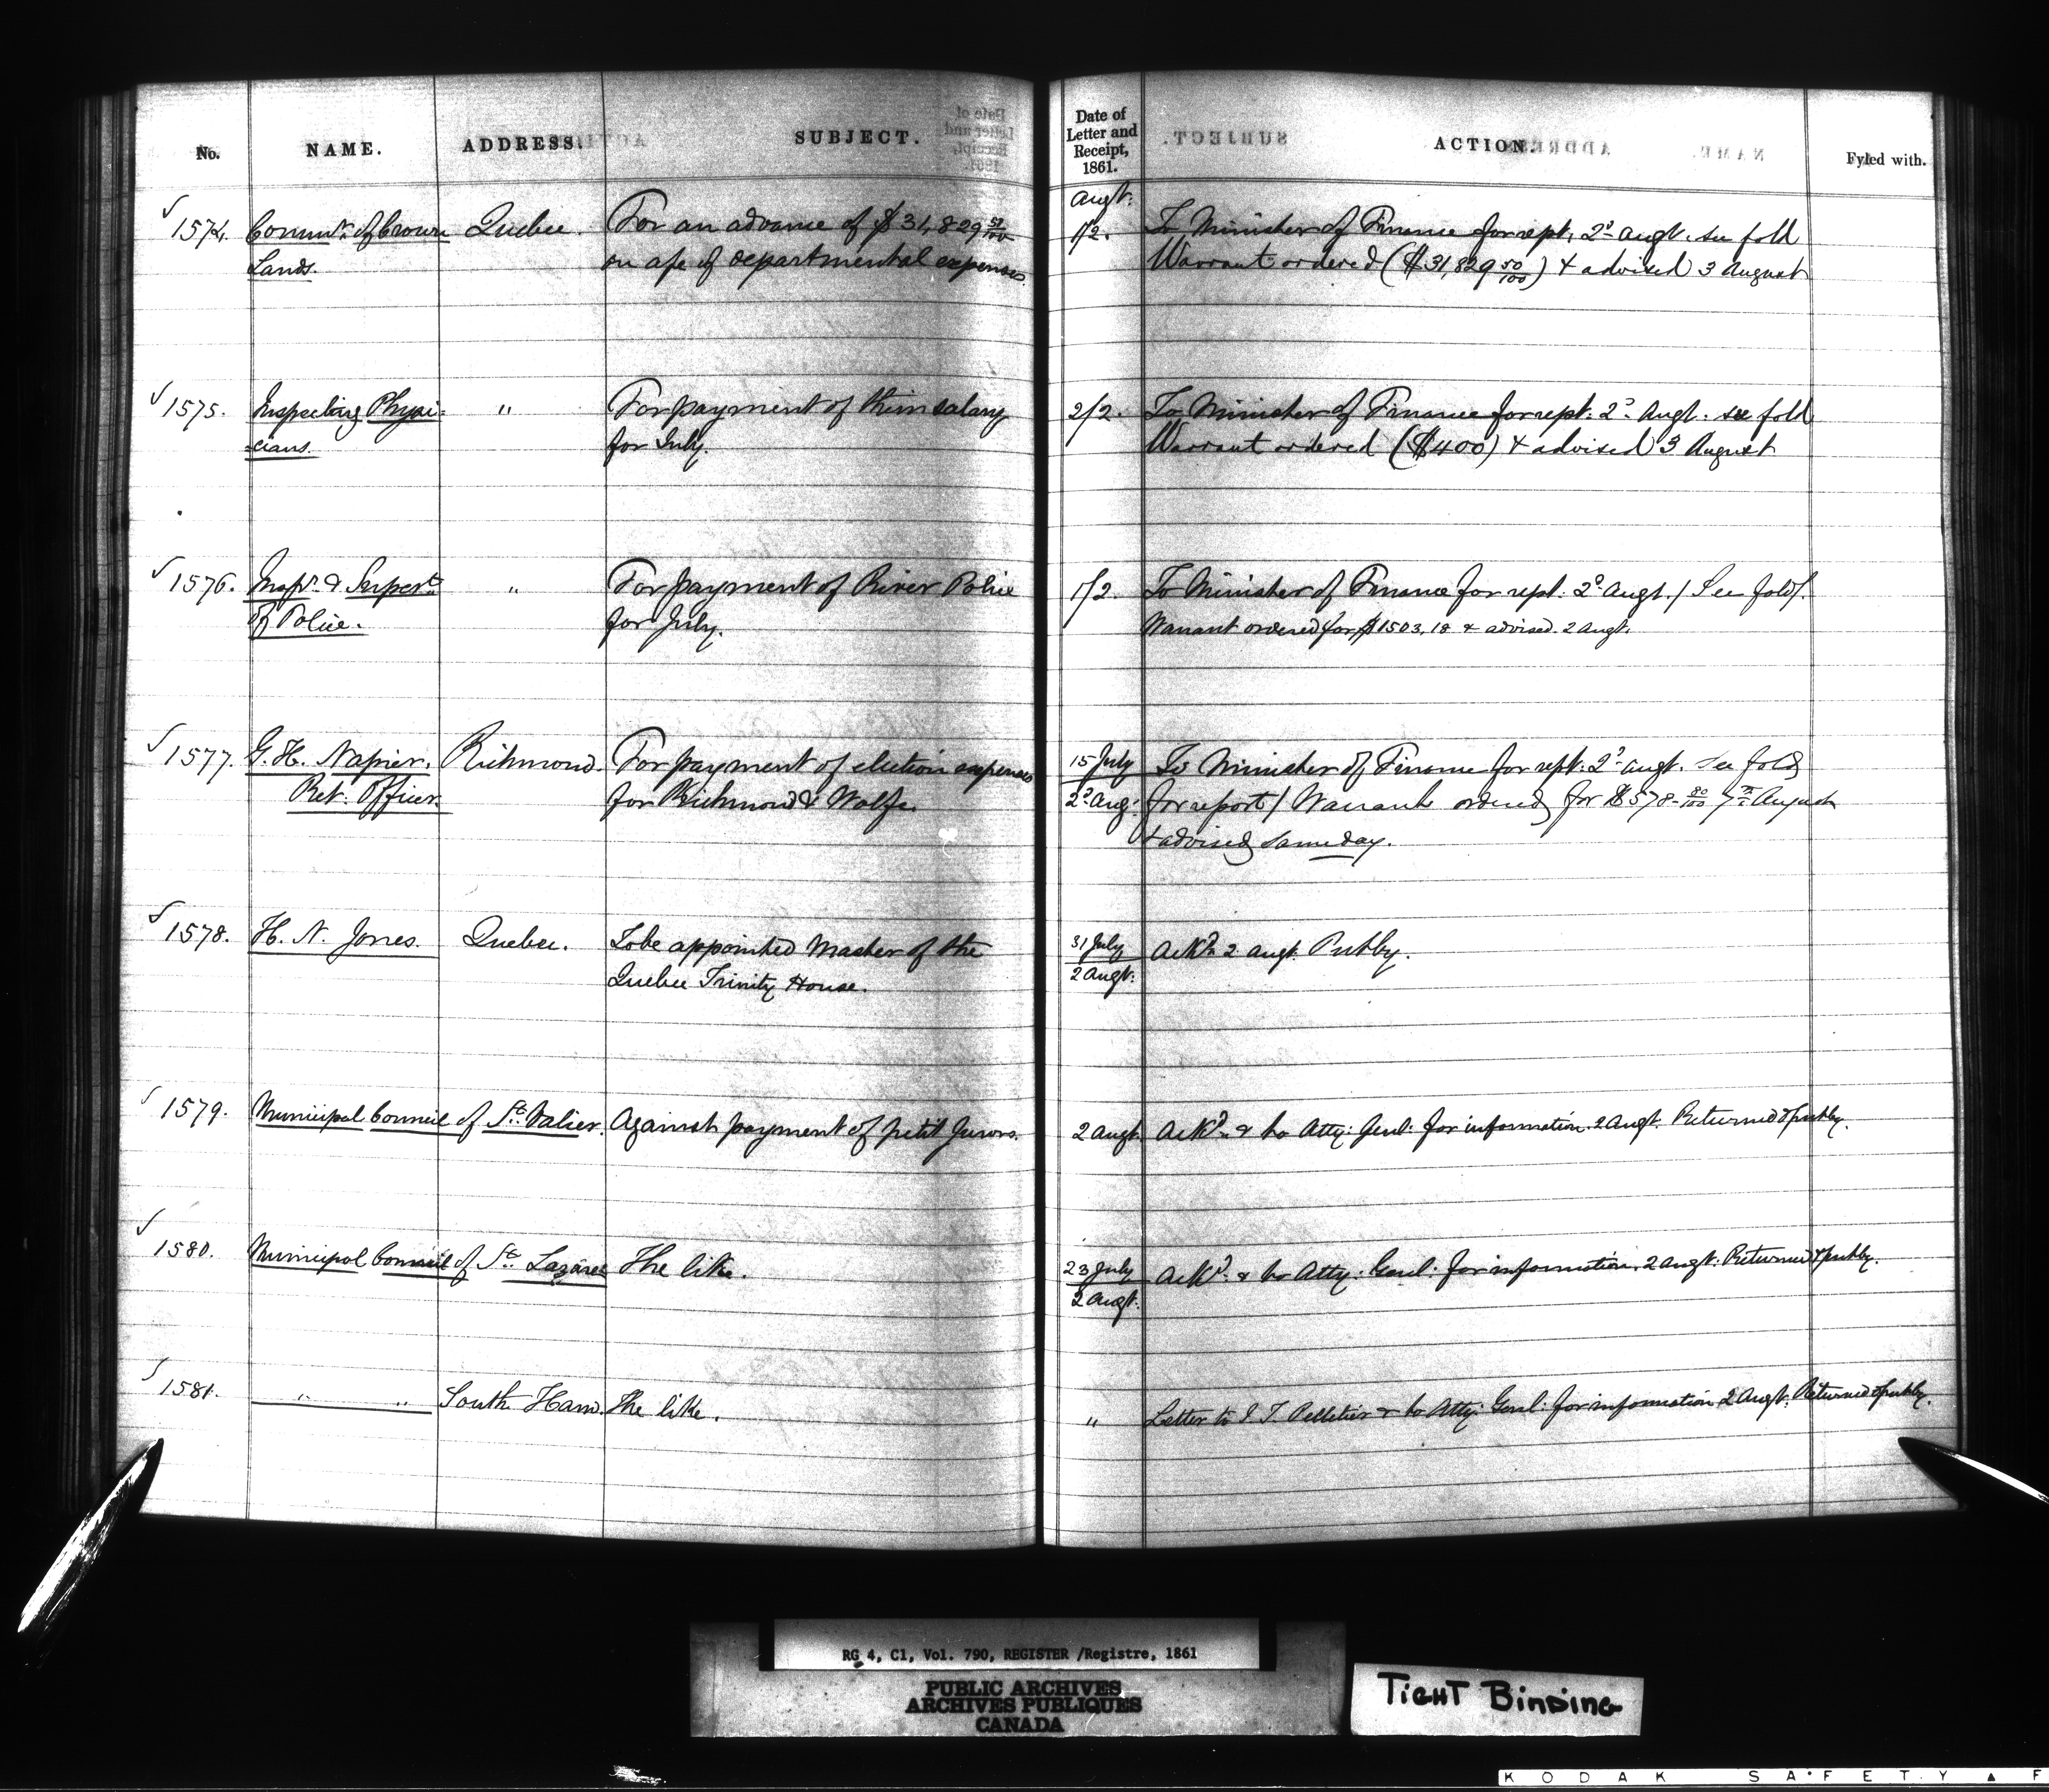 No. NAME. ADDRESS. SUBJECT. Date of Letter and Receipt, 1861. ACTION. Fyled with.
Augt.
1574. Commr. of Crown Quebec. For an advance of $31,829 50/100 1/2. To Minister of Finance for rept. 2d Augt. see fold
Lands. on a/c of departmental expenses. Warrant ordered ($31,829 50/100) & advised 3 August
1575. Inspecting Physi- " For payment of their salary 2/2. To Minister of Finance for rept: 2d Augt. see fold
-cians. for July. Warrant ordered ($400) & advised 3 August
1576. Inspr. & Supert. " For payment of River Police 1/2. To Minister of Finance for rept. 2d Augt. / See fold/.
of Police. for July. Warrant ordered for $1503.18 & advised. 2 Augt.
1577. G. H. Napier. Richmond. For payment of election expenses 15 July To Minister of Finance for rept: 2d Augt. See fold
Ret: Officer. for Richmond & Wolfe. 2d Aug: for report / Warrant ordered for $578 80/100 7th August
& advised same day.
1578. H. N. Jones. Quebec. To be appointed Master of the 31 July Ackd. 2 Augt. Putby.
Quebec Trinity House. 2 Augt.
1579. Municipal Council of St. Valier. Against payment of petit Jurors. 2 Augt. Ackd. & to Atty: Genl: for information. 2 Augt. Returned & putby.
1580. Municipal Council of St. Lazare The like. 23 July Ackd. & to Atty: Genl: for information. 2 Augt: Returned & putby.
2 Augt.
1581. " " South Ham. The like. " Letter to J T Pelletier & to Atty: Genl: for information 2 Augt: Returned & putby.
RG 4, C1, Vol. 790, REGISTER /Registre, 1861
PUBLIC ARCHIVES
ARCHIVES PUBLIQUES
CANADA
TIGHT BINDING
KODAK SAFETY ▲ F